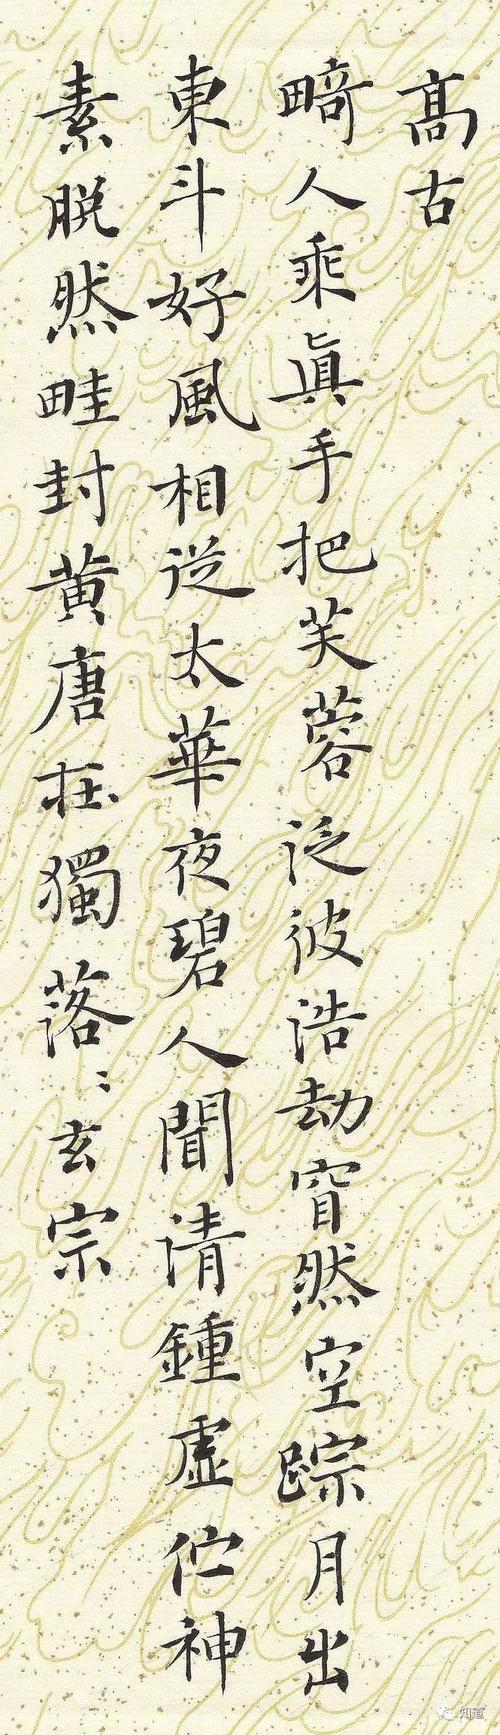 髙古
畸人乘眞手把芙蓉泛彼浩劫窅然空踪月出
東斗好風相從太華夜碧人聞清鍾虛佇神
素脱然畦封黄唐在獨落〻玄宗
知道